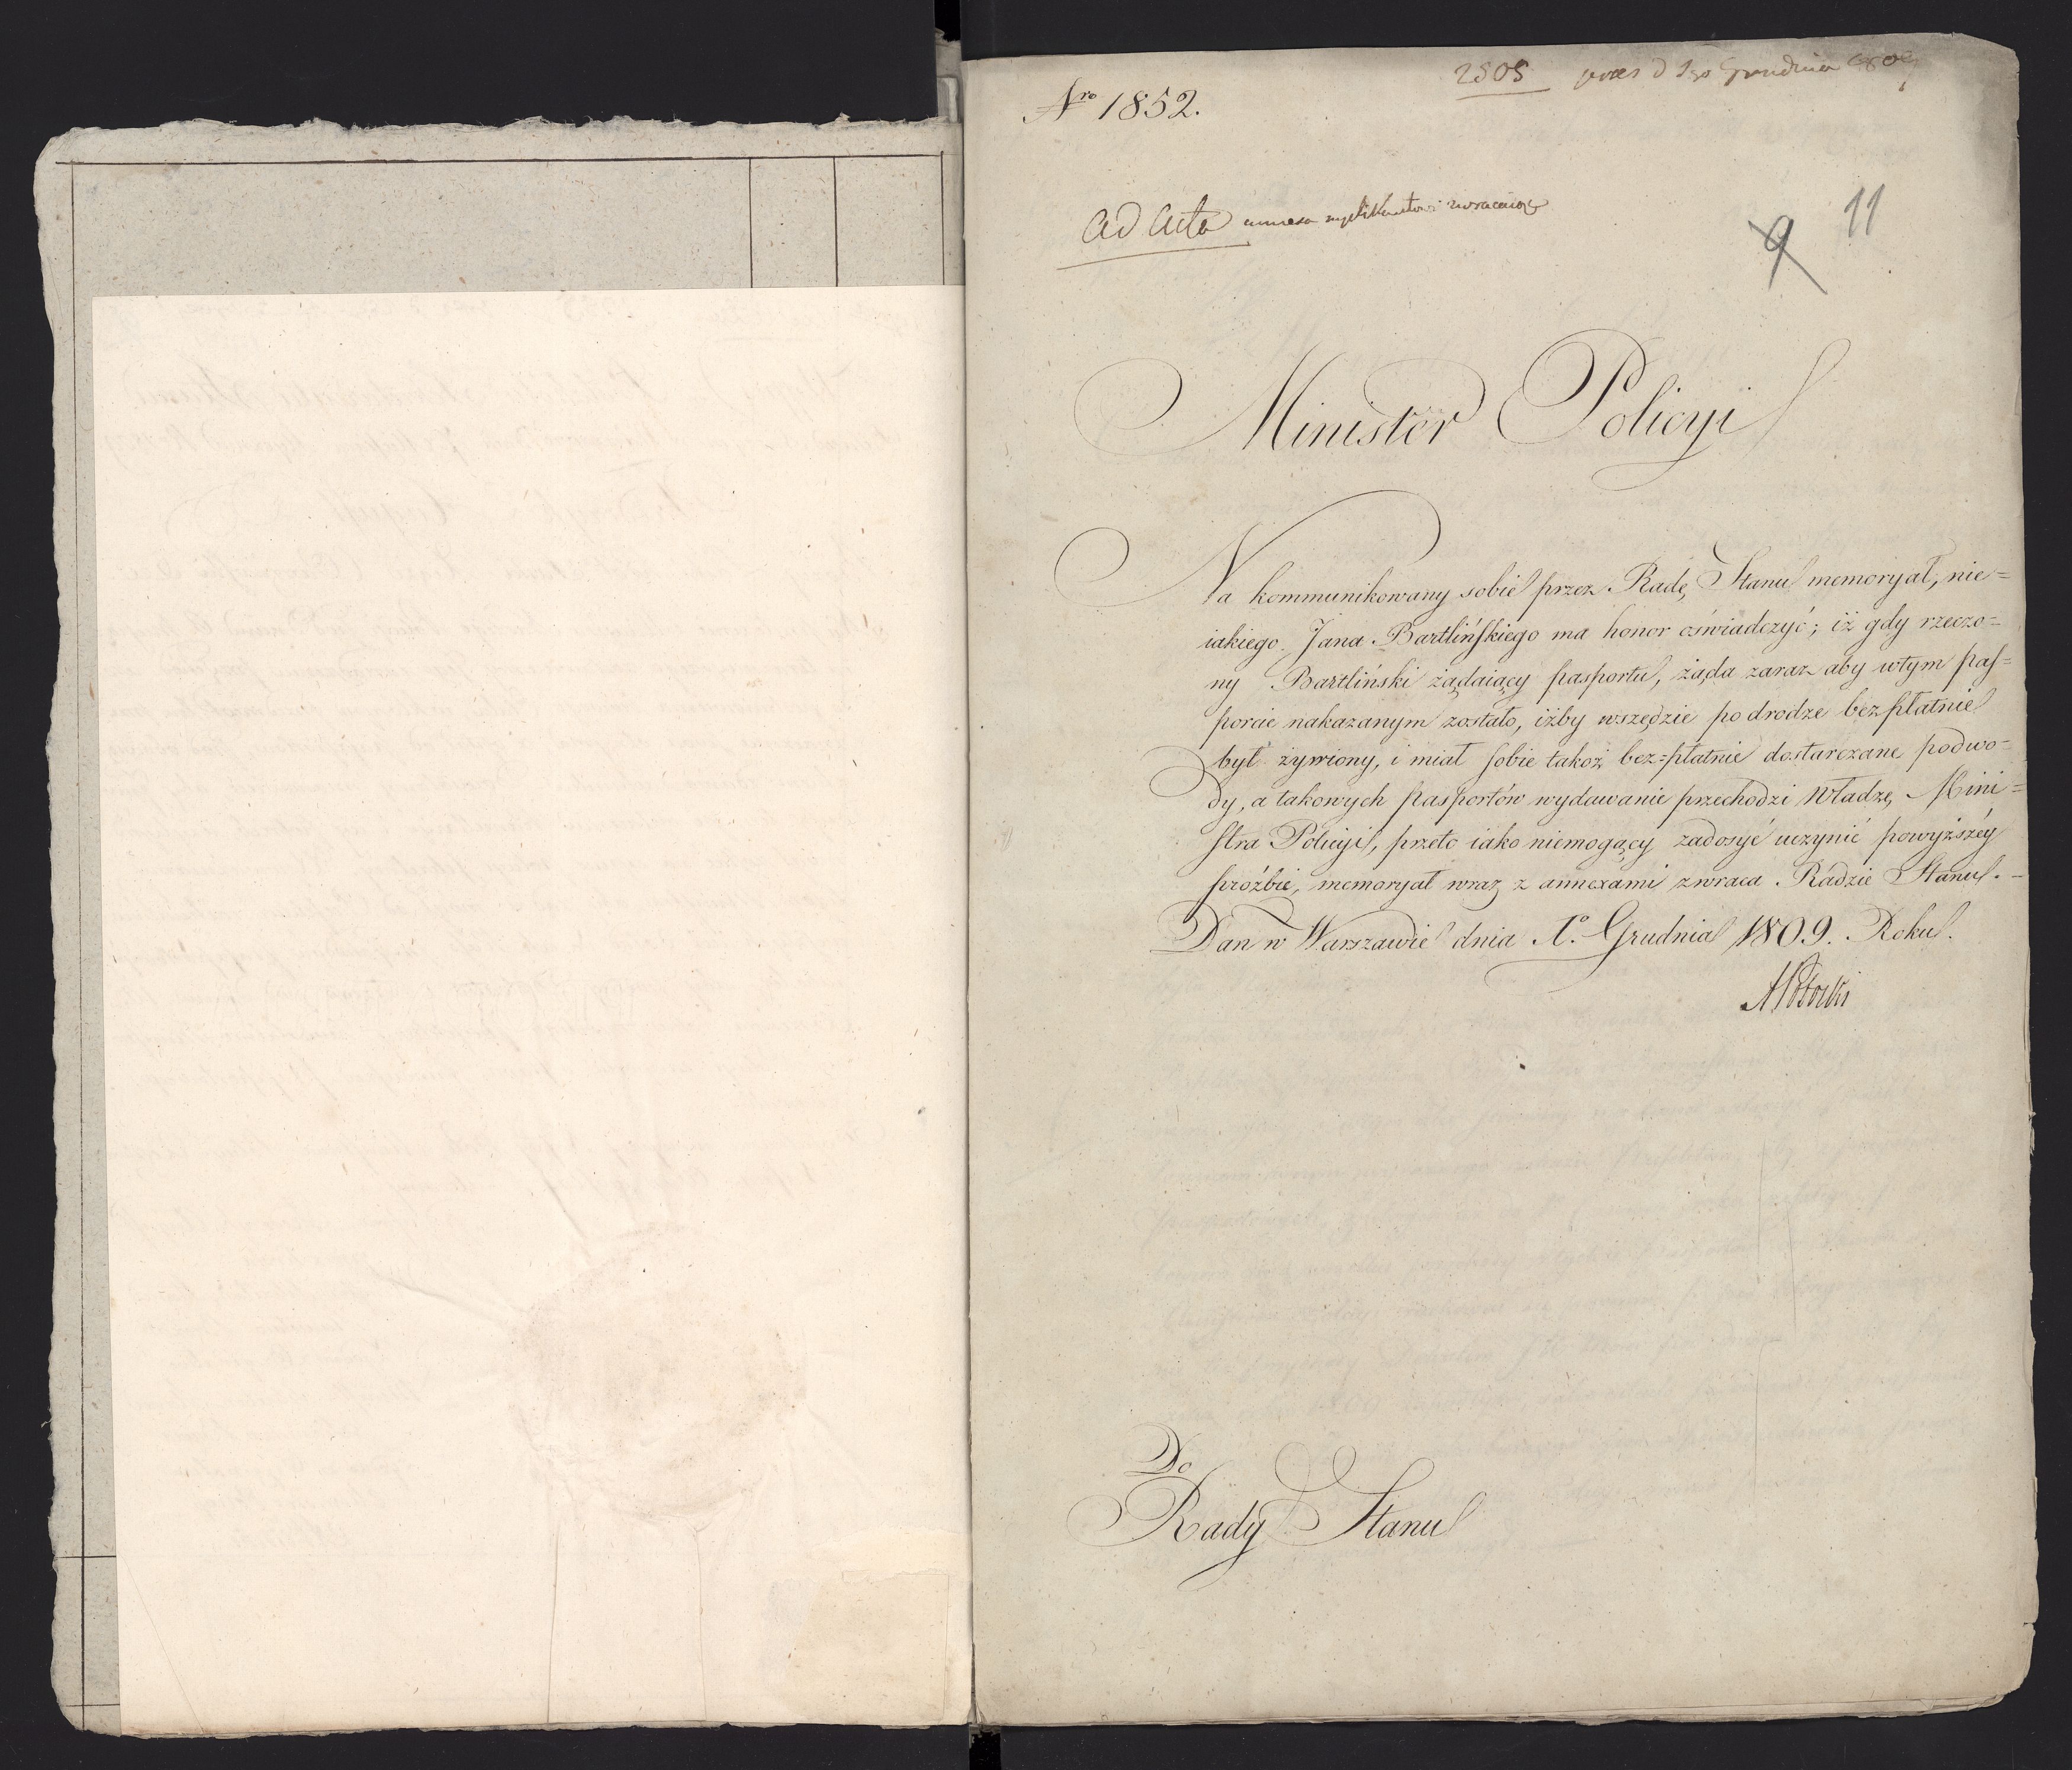 2505 praes d 1go Grudnia 1809
Nro 1852.
Ad Acta annexa supplikantowi zwracaiąc
9 11
Minister Policyi
Na kommunikowany sobie przez Radę Stanu memoryał, nie=
iakiego Jana Bartlińskiego ma honor oświadczyć; iż gdy rzeczo=
ny Bartliński żądaiący pasportu, żąda zaraz aby w tym pas=
porcie nakazanym zostało, iżby wszędzie po drodze bezpłatnie
był żywiony, i miał sobie takoż bez=płatnie dostarczane podwo=
dy, a takowych pasportów wydawanie przechodzi Władzę Mini=
stra Policyi, przeto iako niemogący zadosyć uczynić powyższéy
proźbie, memoryał wraz z annexami zwraca Radzie Stanu.-
Dan w Warszawie dnia 1o. Grudnia 1809. Roku.
APotocki
Do
Rady Stanu